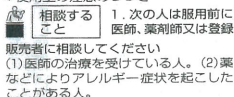 相談する
こと
1. 次の人は服用前に
医師、薬剤師又は登録
販売者に相談してください
(1)医師の治療を受けている人。(2)薬
などによりアレルギー症状を起こした
ことがある人。